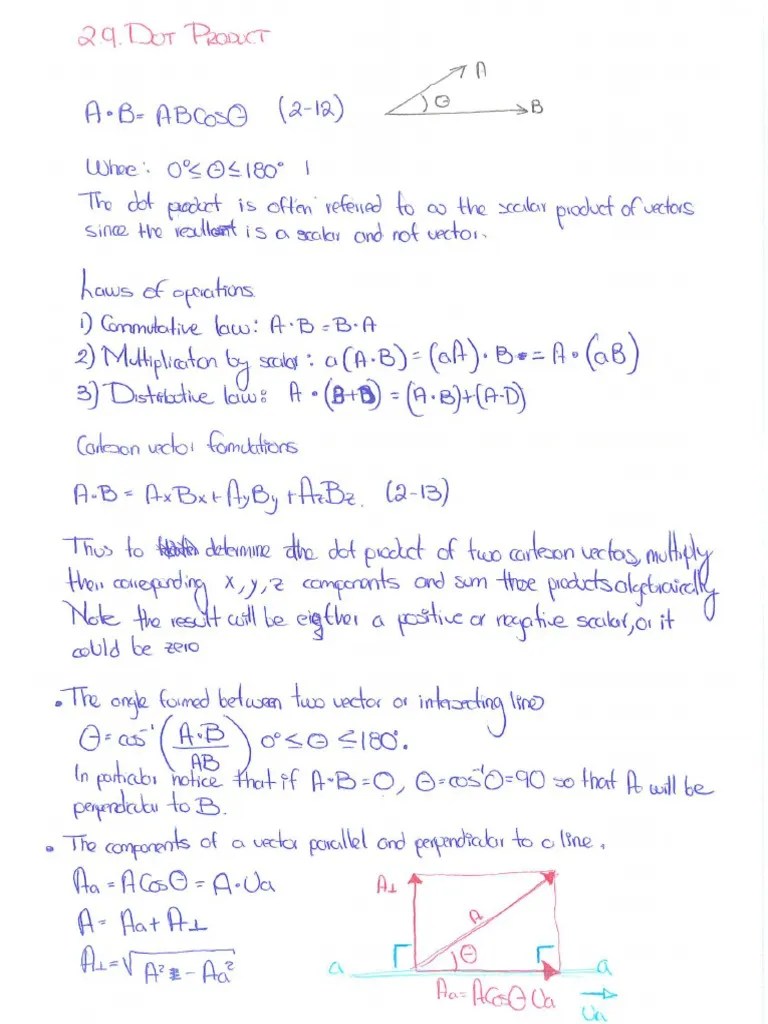 2.9. DOT PRODUCT
A
θ
B
A•B= ABCosθ (2-12)
Whee: 0°≤θ≤180° |
The dot product is often referred to as the scalar product of vectors
since the resultant is a scalar and not vector.
Laws of operations
1) Commutative law: A•B = B•A
2) Multiplication by scalar: a(A•B) = (aA)•B = A•(aB)
3) Distributive law: A•(B+D) = (A•B)+(A•D)
Cartesan vector formulations
A•B = AxBx+AyBy+AzBz. (2-13)
Thus to determine the dot product of two cartesan vectors, multiply
their correponding x, y, z components and sum those products algebraically
Note the result will be eigther a positive or negative scalar, or it
could be zero
• The angle formed between two vector or intersecting lines
θ=cos⁻¹(A•B/AB) 0°≤θ≤180°.
In particular notice that if A•B=0, θ=cos⁻¹0=90 so that A will be
perpendicular to B.
• The components of a vector parallel and perpendicular to a line.
Aa = ACosθ = A•Ua
A = Aa+A⊥
A⊥=√A²-Aa²
A⊥
A
θ
a
a
Aa=ACosθ Ua
Ua